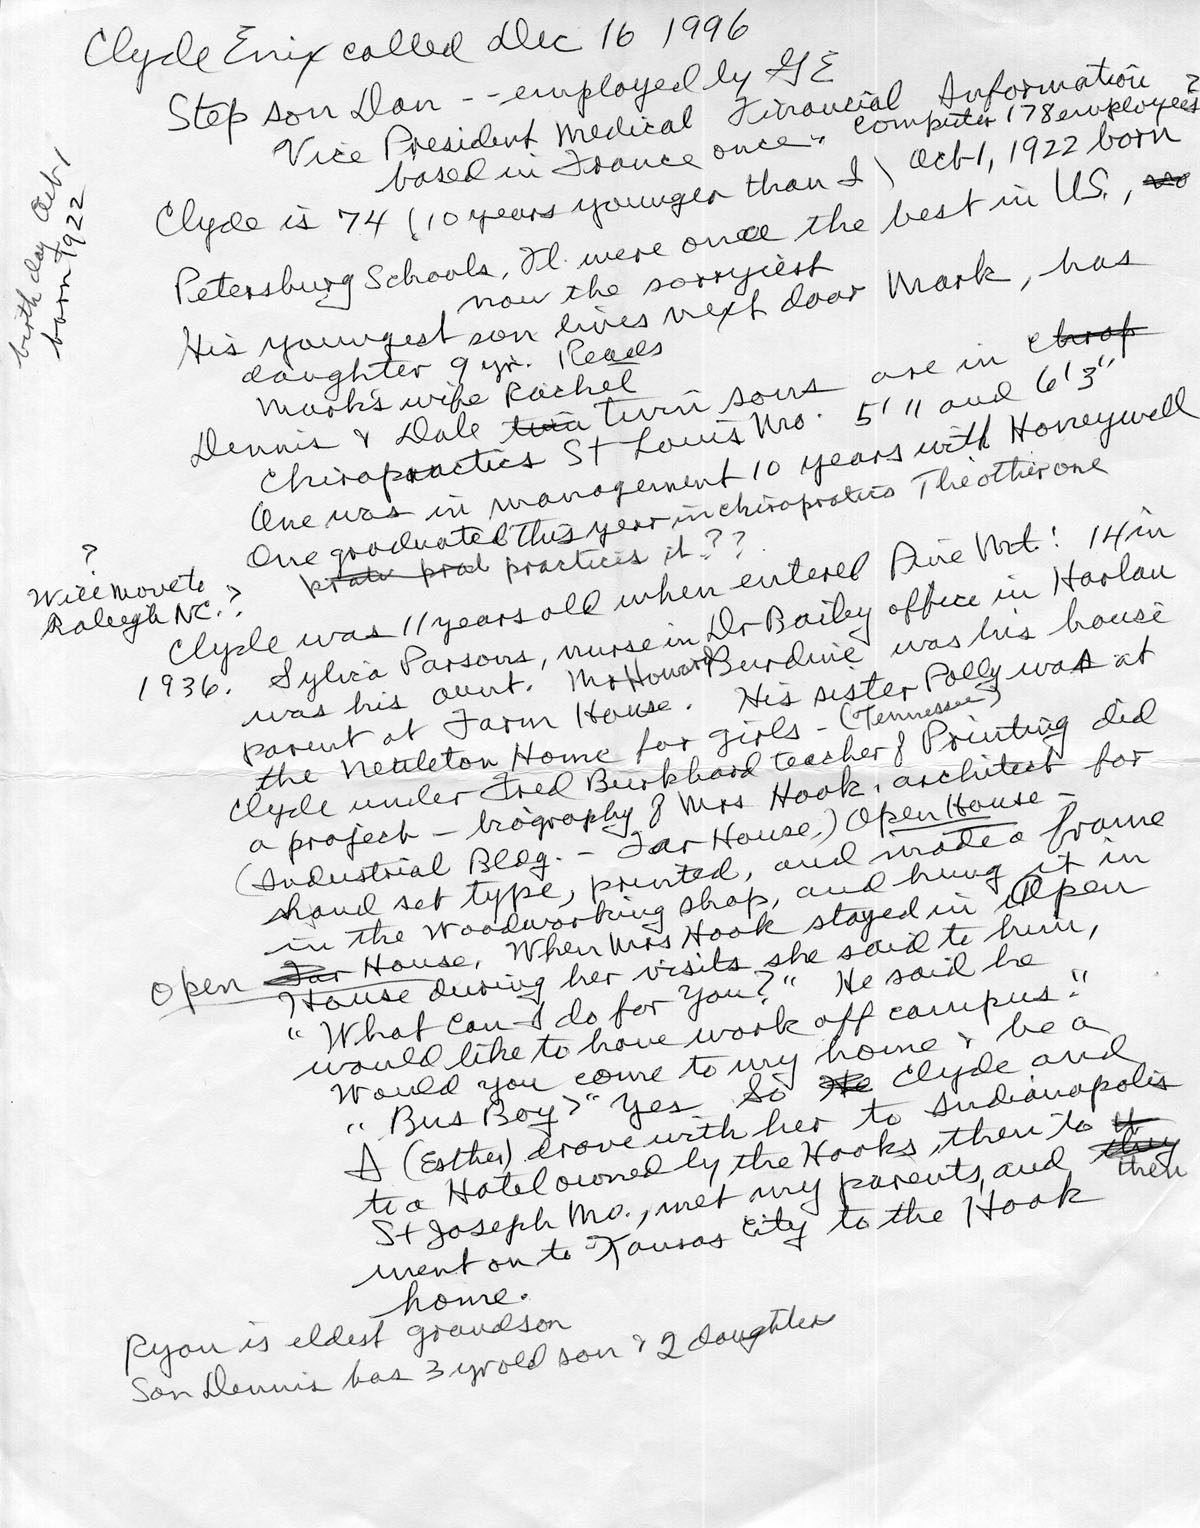 Clyde Enix called Dec 16 1996
Step son Dan -- employed by GE
Vice President Medical Financial Information ?
based in France once. Computer 178 employees
Clyde is 74 (10 years younger than I) Oct 1, 1922 born
birthday Oct 1
born 1922
Petersburg Schools, Il. were once the best in U.S.,
now the sorryiest
His youngest son lives next door Mark, has
daughter 9 yr. Reads
Mark's wife Rachel
Dennis & Dale twin twin sons are in chrop
Chiropractics St Louis Mo. 5' 11" and 6'3"
One was in management 10 years with Honeywell
One graduated this year in chiropratics The other one
practices it??
?
Will move to
Raleegh NC.?
Clyde was 11 years old when entered Pine Mt! 14 in
1936. Sylvia Parsons, nurse in Dr Bailey office in Harlan
was his aunt. Mr Howard Burdine was his house
parent at Farm House. His sister Polly was at
the Nettleton Home for girls - (Tennessee)
Clyde under Fred Burkhard teacher of Printing did
a project - biography of Mrs Hook, architect for
(Industrial Bldg. - Far House,) Open House -
hand set type, printed, and made a frame
in the woodworking shop, and hung it in
Open Far House. When Mrs Hook stayed in Open
House during her visits she said to him,
"What can I do for you?" He said he
would like to have work off campus."
Would you come to my home & be a
"Bus Boy?" Yes So he Clyde and
I (Esther) drove with her to Indianapolis
to a Hotel owned by the Hooks, then to
St Joseph Mo., met my parents, and they then
went on to Kansas City to the Hook
home.
Ryan is eldest grandson
Son Dennis has 3 yr old son & 2 daughter